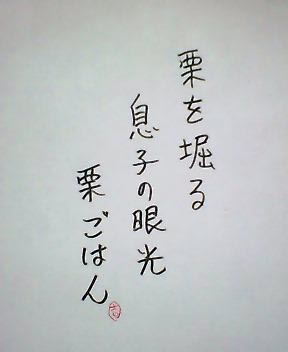 栗を堀る
息子の眼光
栗ごはん